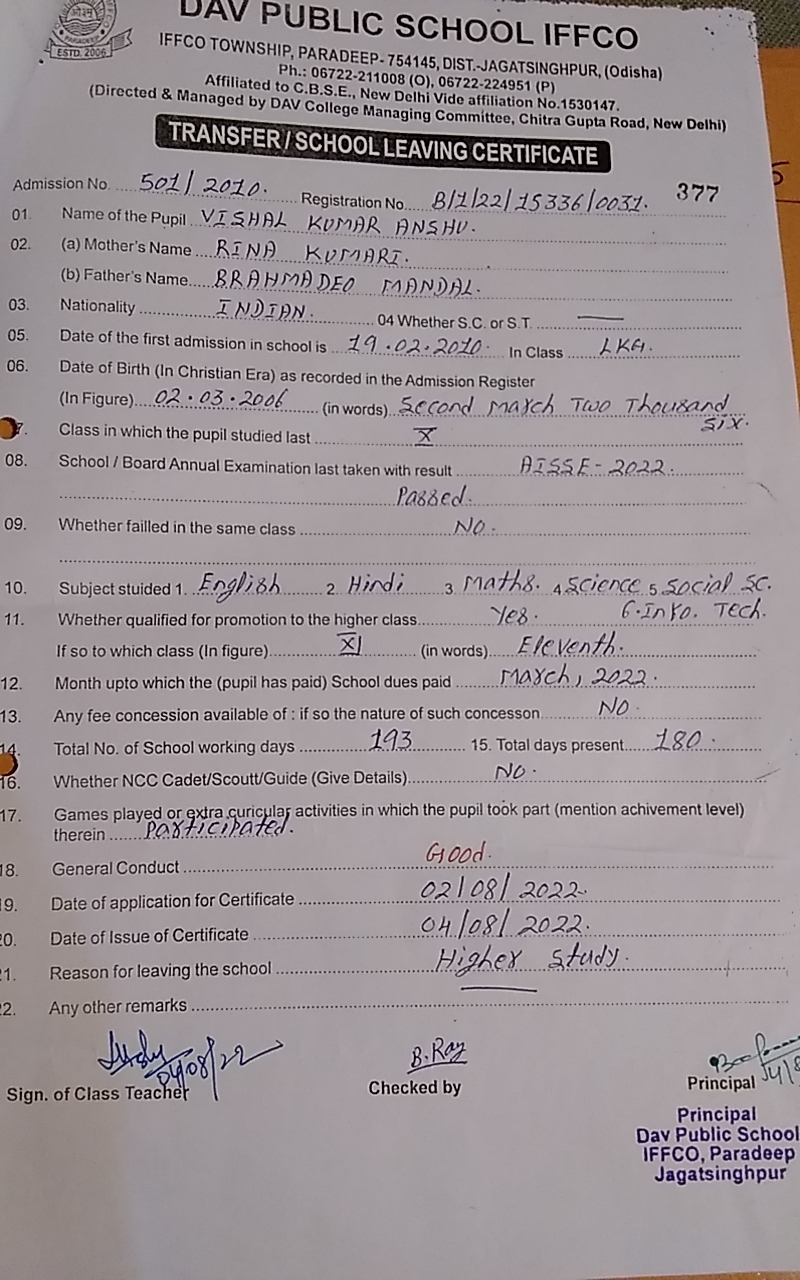 DAV PUBLIC SCHOOL IFFCO
ESTD. 2006
IFFCO TOWNSHIP, PARADEEP- 754145, DIST.-JAGATSINGHPUR, (Odisha)
Ph.: 06722-211008 (O), 06722-224951 (P)
Affiliated to C.B.S.E., New Delhi Vide affiliation No.1530147.
(Directed & Managed by DAV College Managing Committee, Chitra Gupta Road, New Delhi)
TRANSFER / SCHOOL LEAVING CERTIFICATE
Admission No. 501/2010. Registration No. B/1/22/15336/0031. 377
01. Name of the Pupil VISHAL KUMAR ANSHU.
02. (a) Mother's Name RINA KUMARI.
(b) Father's Name BRAHMADEO MANDAL.
03. Nationality INDIAN. 04 Whether S.C. or S.T. —
05. Date of the first admission in school is 19.02.2010. In Class LKG.
06. Date of Birth (In Christian Era) as recorded in the Admission Register
(In Figure) 02.03.2006 (in words) Second March Two Thousand
Six.
7. Class in which the pupil studied last X
08. School / Board Annual Examination last taken with result AISSE-2022.
Passed.
09. Whether failled in the same class NO.
10. Subject stuided 1. English 2. Hindi 3. Maths. 4. Science 5. Social Sc.
6. Info. Tech.
11. Whether qualified for promotion to the higher class Yes.
If so to which class (In figure) XI (in words) Eleventh.
12. Month upto which the (pupil has paid) School dues paid March, 2022.
13. Any fee concession available of : if so the nature of such concesson NO.
14. Total No. of School working days 193 15. Total days present 180.
16. Whether NCC Cadet/Scoutt/Guide (Give Details) NO.
17. Games played or extra curicular activities in which the pupil took part (mention achivement level)
therein Participated.
18. General Conduct Good.
19. Date of application for Certificate 02/08/2022.
20. Date of Issue of Certificate 04/08/2022.
21. Reason for leaving the school Higher Study.
22. Any other remarks —
04/08/22 B.Ray
Sign. of Class Teacher Checked by Principal
Principal
Dav Public School
IFFCO, Paradeep
Jagatsinghpur